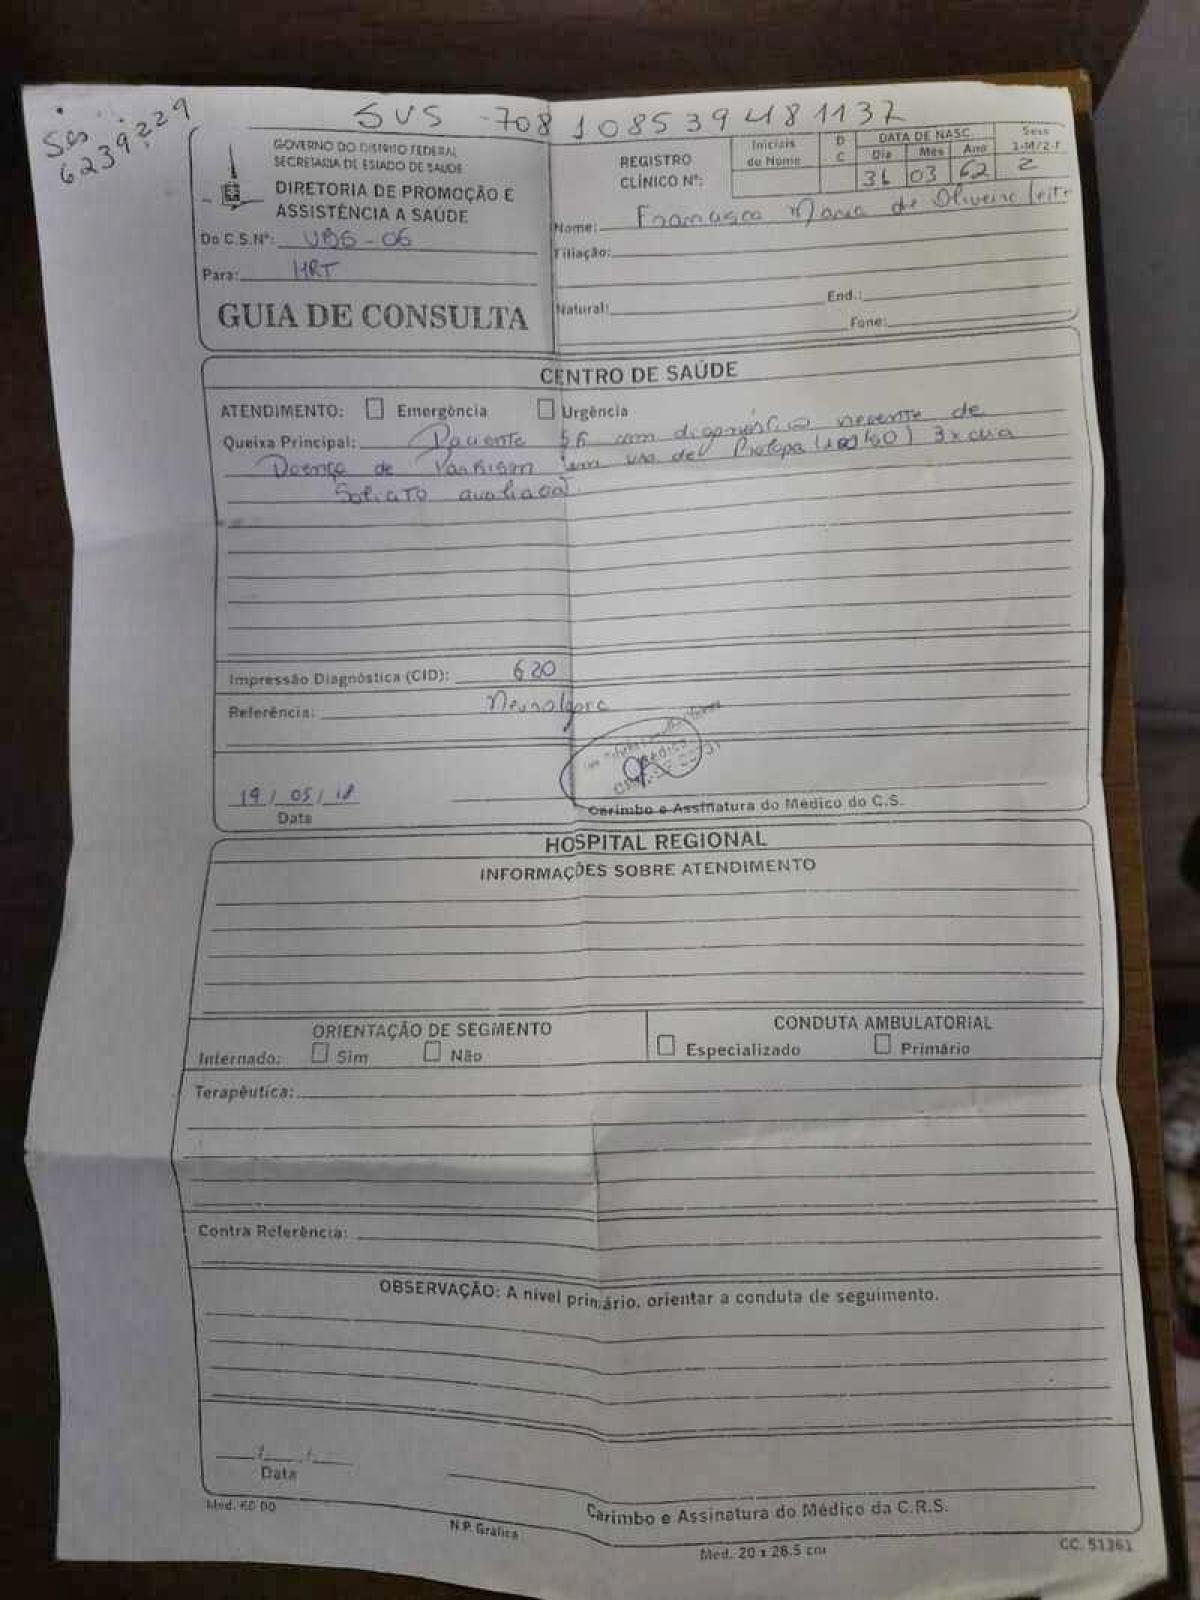 SUS 708 1085 3948 1137
Ses
6239229
GOVERNO DO DISTRITO FEDERAL
SECRETARIA DE ESTADO DE SAÚDE
DIRETORIA DE PROMOÇÃO E
ASSISTÊNCIA A SAÚDE
Do C.S.Nº: UBS - 06
Para: HRT
GUIA DE CONSULTA
REGISTRO
CLÍNICO Nº:
Iniciais
do Nome
D
C
DATA DE NASC.
Dia Mês Ano
31 03 62
Sexo
1-M/2-F
2
Nome: Francisca Maria de Oliveira Leite
Filiação:
Natural: End.:
Fone:
CENTRO DE SAÚDE
ATENDIMENTO: Emergência Urgência
Queixa Principal: Paciente 56 com diagnóstico recente de
Doença de Parkison em uso de Prolopa (100/50) 3x dia
Solicito avaliação
Impressão Diagnóstica (CID): G20
Referência: Neurologia
19/05/18
Data
Carimbo e Assinatura do Médico do C.S.
HOSPITAL REGIONAL
INFORMAÇÕES SOBRE ATENDIMENTO
ORIENTAÇÃO DE SEGMENTO
Internado: Sim Não
CONDUTA AMBULATORIAL
Especializado Primário
Terapêutica:
Contra Referência:
OBSERVAÇÃO: A nível primário, orientar a conduta de seguimento.
Data
Carimbo e Assinatura do Médico da C.R.S.
Med. 60 DO
N.P. Gráfica
Med. 20 x 28.5 cm
CC. 51361